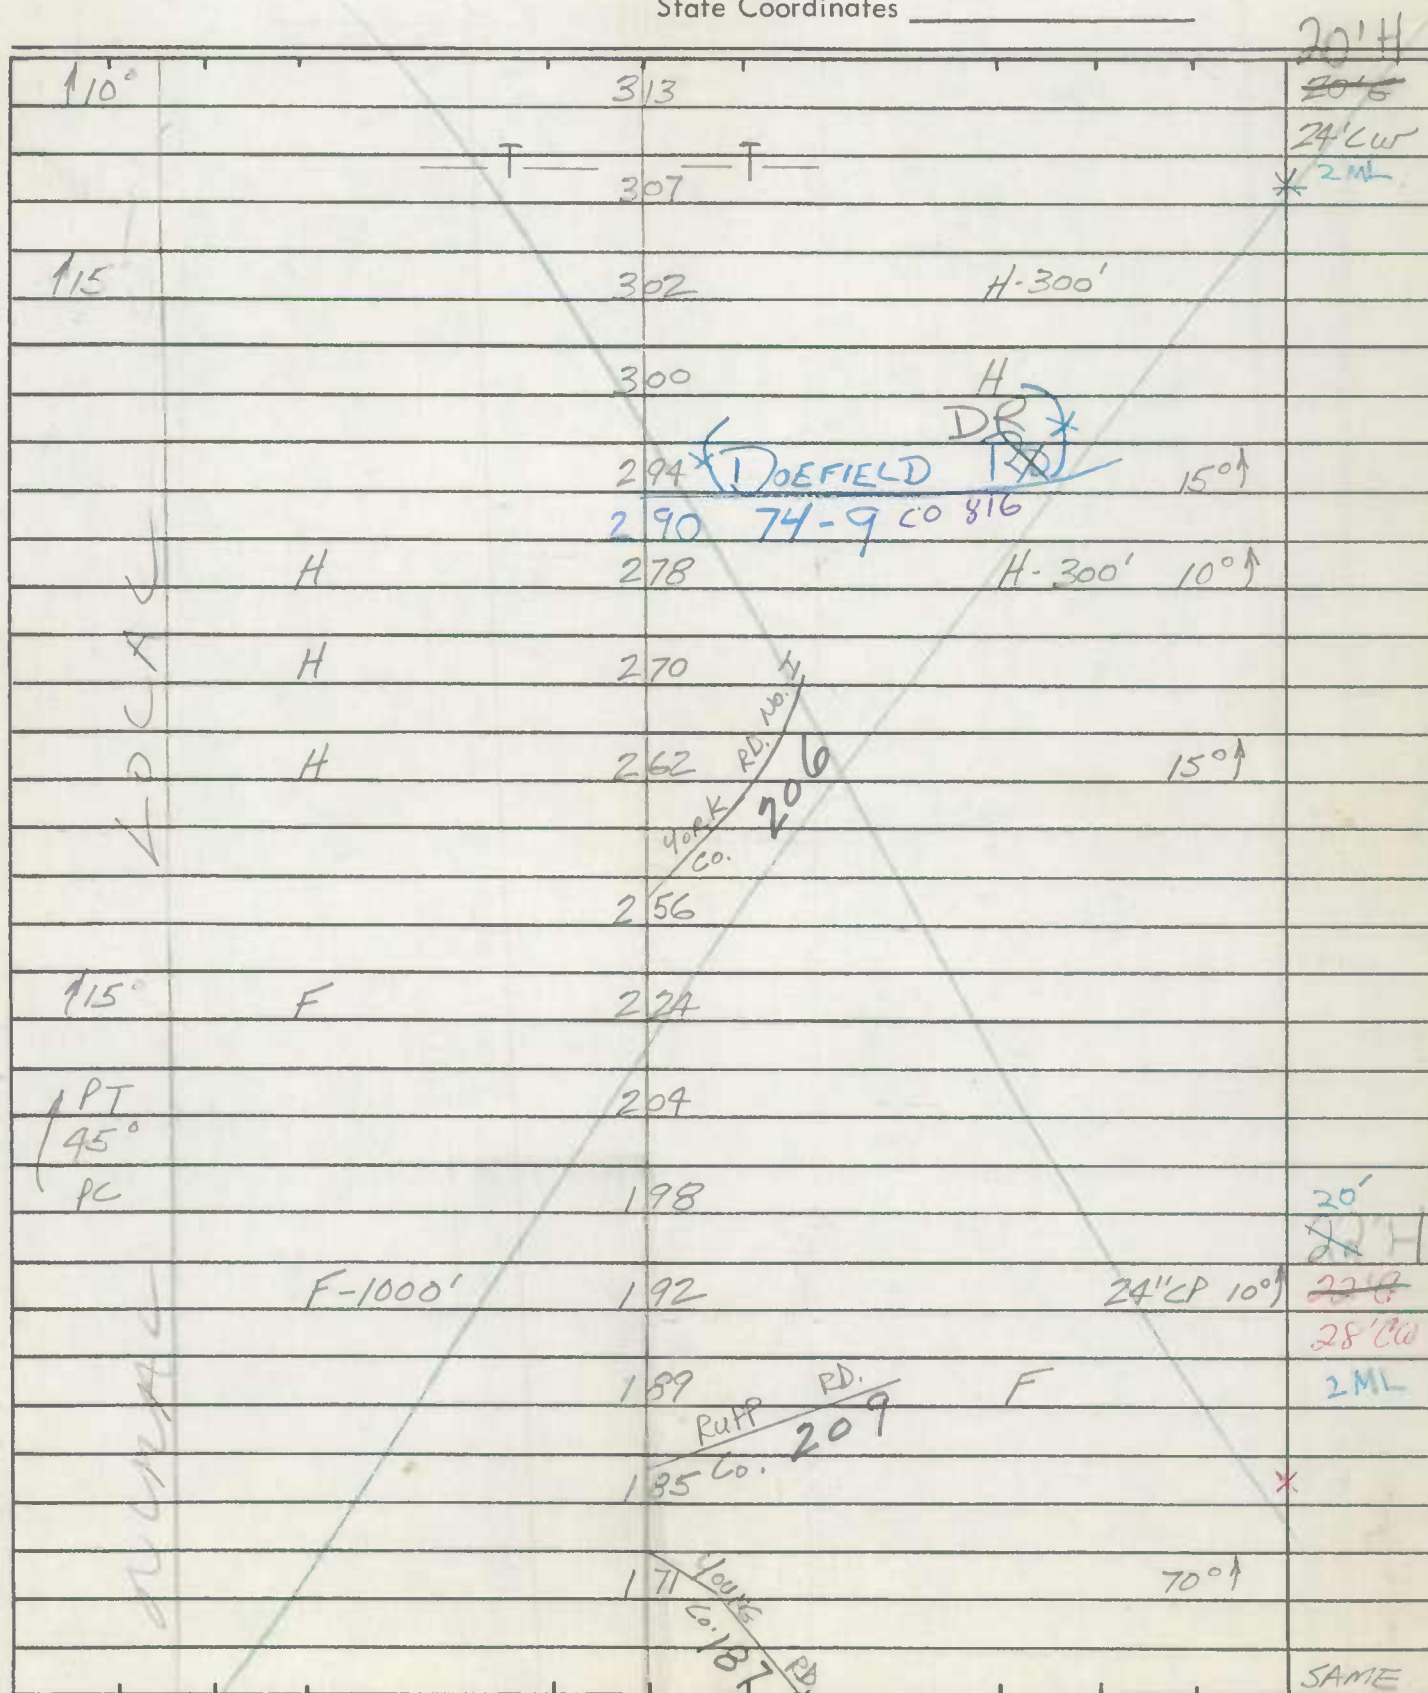 State Coordinates
20'H
↑10° 313 20'G
24'CW
T T
307 2 ML
↑15 302 H-300'
300 H
DR
294 DOEFIELD RD 15°↑
290 74-9 CO 816
H 278 H-300' 10°↑
H 270
H 262 15°↑
YORK RD. No. 4
CO. 206
256
↑15° F 224
PT 204
45°
PC 198 20'
22'H
F-1000' 192 24"CP 10°↑ 22'G
28'CW
189 F 2 ML
RUPP RD.
Co. 209
185
171 70°↑
YOUNG RD
Co. 187
SAME